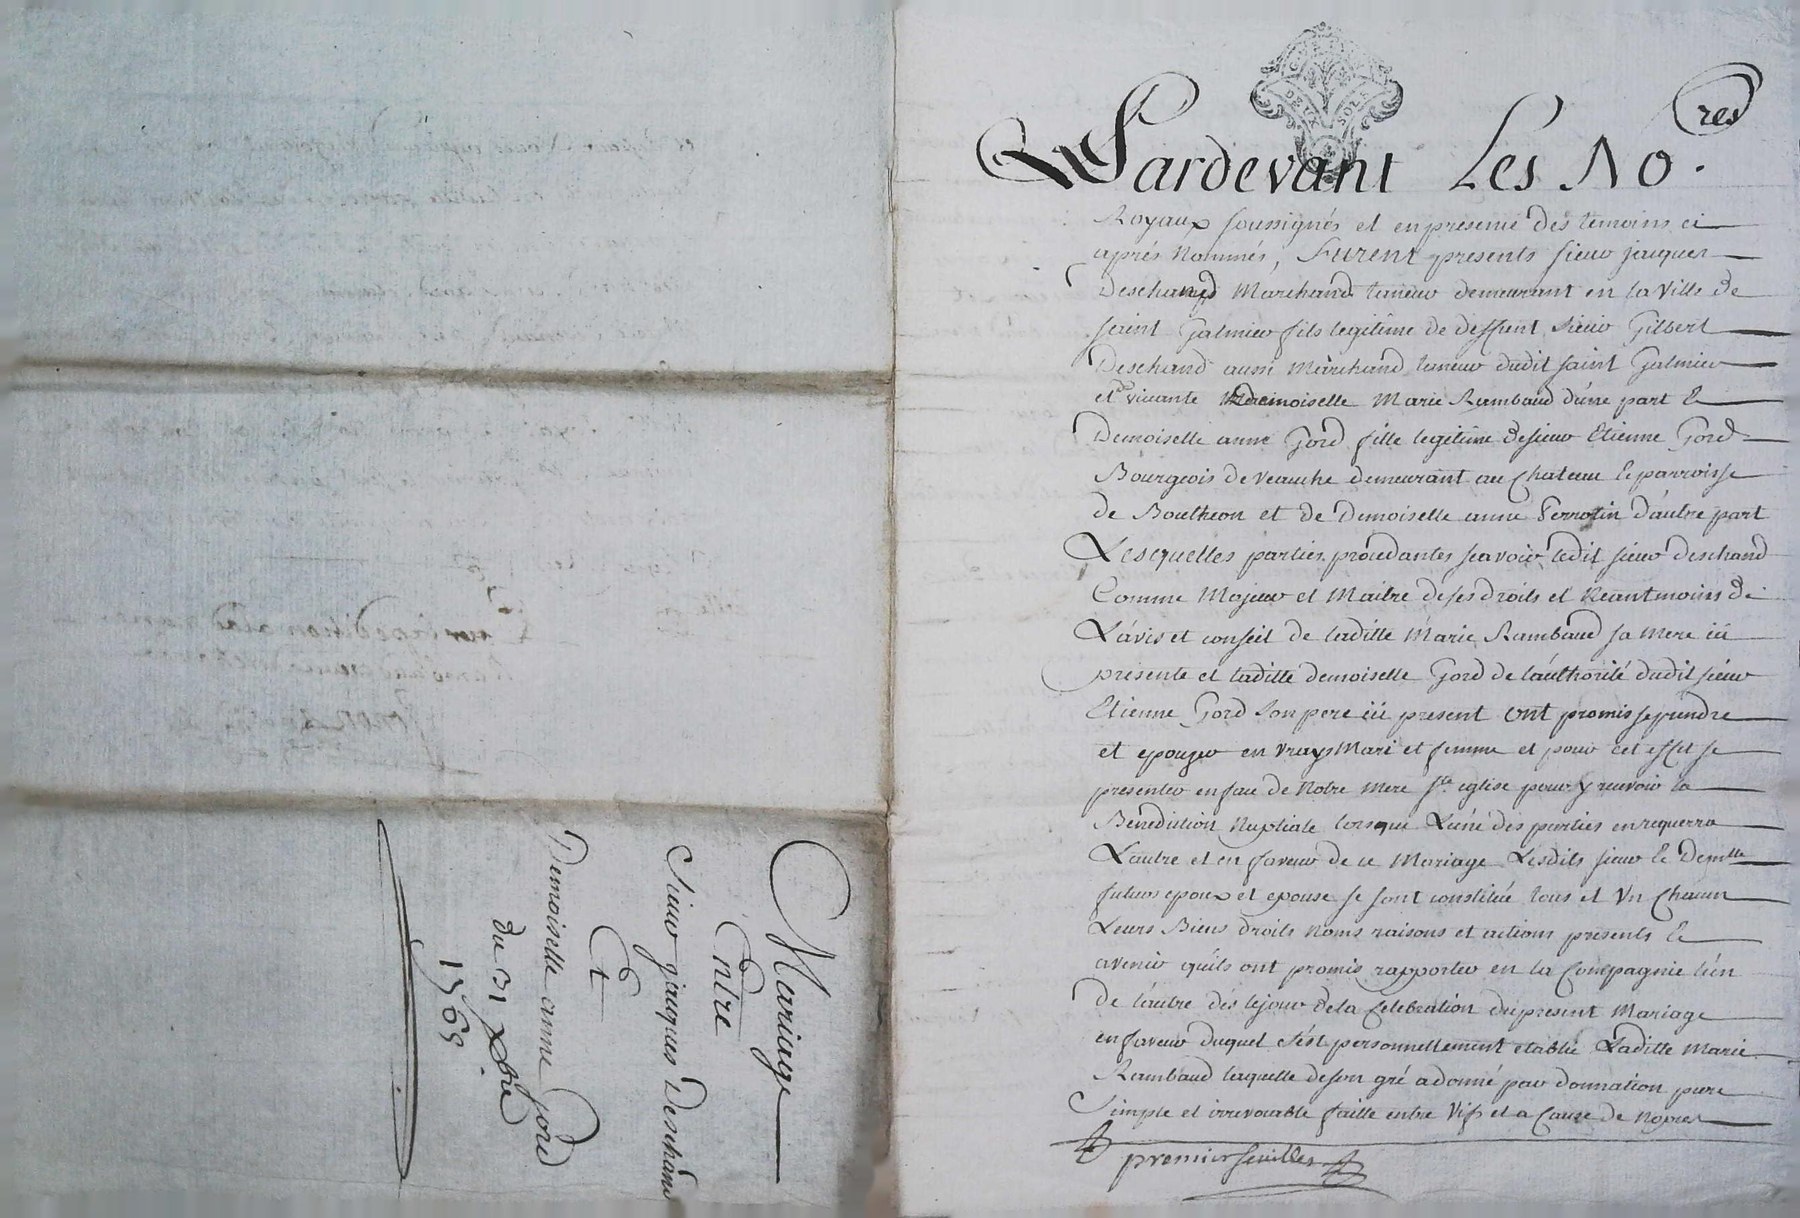 Mariage
Entre
Sieur jacques Deschand
Et
Demoiselle anne Gord
du 31 xbre
1769
DEUX SOLS
Pardevant Les No.res
Royaux soussignés et en presence des temoins ci
aprés Nommés, Furent presents sieur jacques
Deschand Marchand taneur demeurant en la Ville de
saint Galmier fils legitime de deffunt sieur Gilbert
Deschand aussi Marchand taneur dudit saint Galmier
et vivante Demoiselle Marie Rambaud d'une part &
Demoiselle anne Gord fille legitime de sieur Etienne Gord
Bourgeois de veauche demeurant au Chateau & parroisse
de Boutheon et de Demoiselle anne Ferrotin d'autre part
Lesquelles parties procedantes scavoir ledit sieur deschand
Comme Majeur et Maitre de ses droits et Neantmoins de
L'avis et conseil de laditte Marie Rambaud sa Mere ici
presente et laditte demoiselle Gord de l'authorité dudit sieur
Etienne Gord son pere ici present ont promis se prendre
et epouser en vrays Mari et femme et pour cet effet se
presenter en face de Notre Mere Ste eglise pour y recevoir la
Benediction Nuptiale lorsque L'une des parties en requerra
L'autre et en faveur de ce Mariage Lesdits sieur & Demlle
futurs epoux et epouse se sont constitué tous et Un Chacun
Leurs Biens droits Noms raisons et actions presents &
avenir qu'ils ont promis rapporter en la Compagnie l'un
de l'autre dés le jour de la Celebration du present Mariage
en faveur duquel s'est personnellement etablie Laditte Marie
Rambaud laquelle de son gré a donné par donnation pure
Simple et irrevocable faitte entre Vifs et a Cause de Nopces
premier feuillet